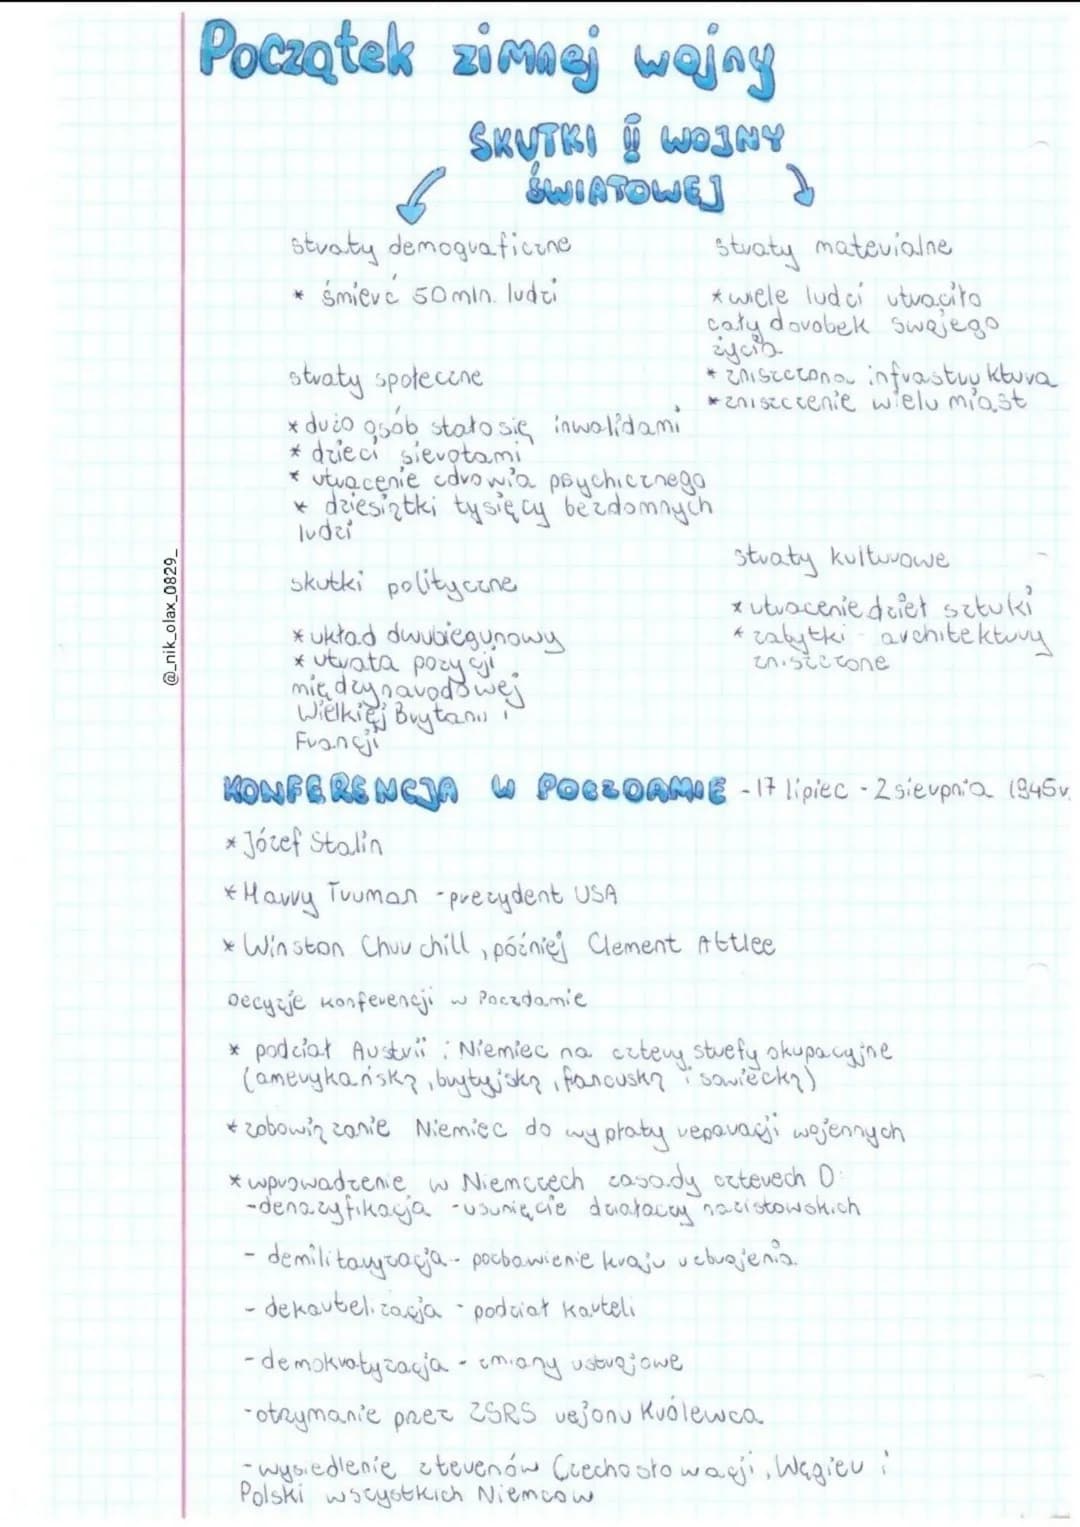 Początek zimnej wojny
SKUTKI II WOJNY
ŚWIATOWEJ
straty demograficzne
* śmierć 50 mln. ludzi
straty społeczne
* dużo osób stało się inwalidami
* dzieci sierotami
* utracenie zdrowia psychicznego
* dziesiątki tysięcy bezdomnych
ludzi
skutki polityczne
* układ dwubiegunowy
* utrata pozycji
międzynarodowej
Wielkiej Brytanii i
Francji
straty materialne
* wiele ludzi utraciło
cały dorobek swojego
życia
* zniszczona infrastruktura
* zniszczenie wielu miast
straty kulturowe
* utracenie dzieł sztuki
* zabytki architektury
zniszczone
@_nik_olax_0829_
KONFERENCJA W POCZDAMIE - 17 lipiec - 2 sierpnia 1945r.
* Józef Stalin
* Harry Truman - prezydent USA
* Winston Churchill, później Clement Attlee
Decyzje konferencji w Poczdamie
* podział Austrii i Niemiec na cztery strefy okupacyjne
(amerykańską, brytyjską, francuską i sowiecką)
* zobowiązanie Niemiec do wypłaty reparacji wojennych
* wprowadzenie w Niemczech zasady czterech D:
- denazyfikacja - usunięcie działaczy nazistowskich
- demilitaryzacja - pozbawienie kraju uzbrojenia
- dekartelizacja - podział karteli
- demokratyzacja - zmiany ustrojowe
- otrzymanie przez ZSRS rejonu Królewca
- wysiedlenie z terenów Czechosłowacji, Węgier i
Polski wszystkich Niemców